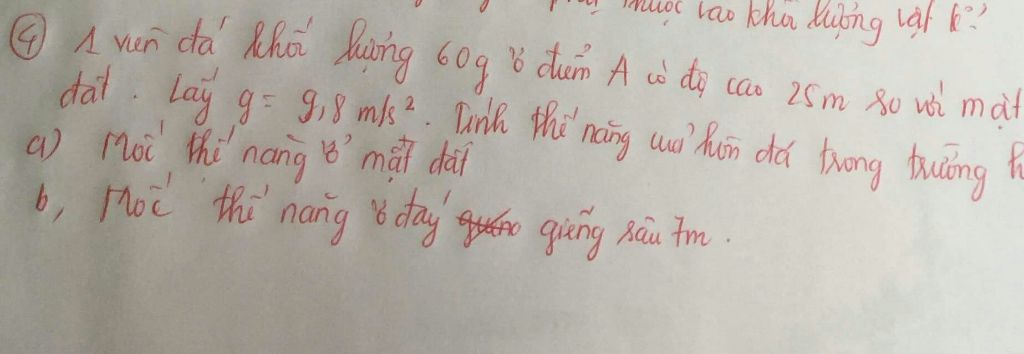 phụ thuộc vào khối lượng vật k?
④ 1 viên đá khối lượng 60g ở điểm A có độ cao 25m so với mặt
đất. Lấy g = 9,8 m/s². Tính thế năng của hòn đá trong trường
a) Mốc thế năng ở mặt đất
b, Mốc thế năng ở đáy giếng sâu 7m.